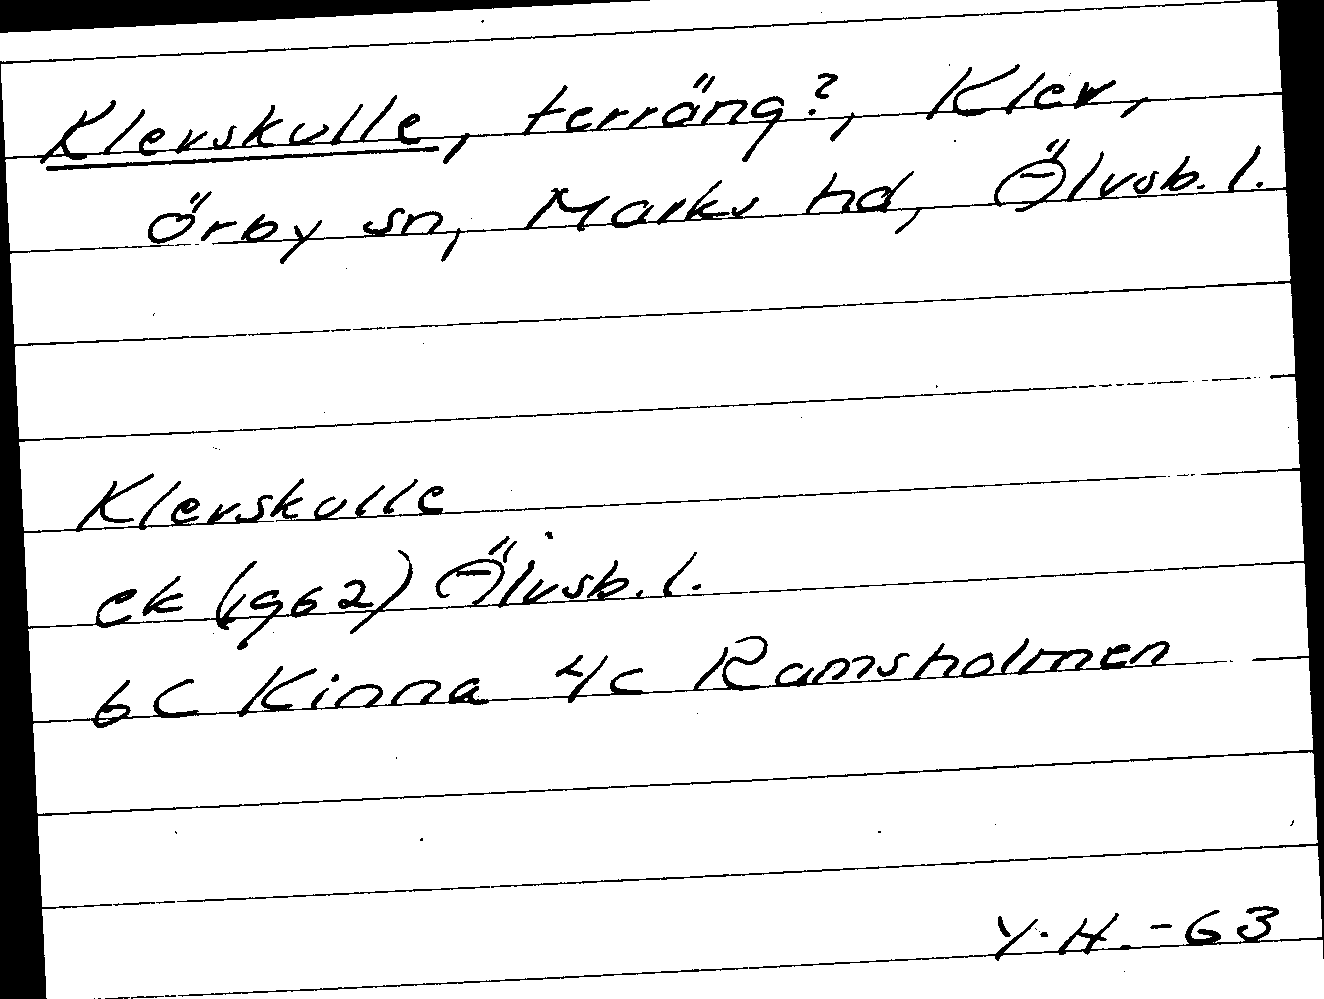 Klevskulle, terräng?, Klev,
Örby sn, Marks hd, Älvsb. l.
Klevskulle
ek (1962) Älvsb. l.
6C Kinna 4c Ramsholmen
Y.H. -63